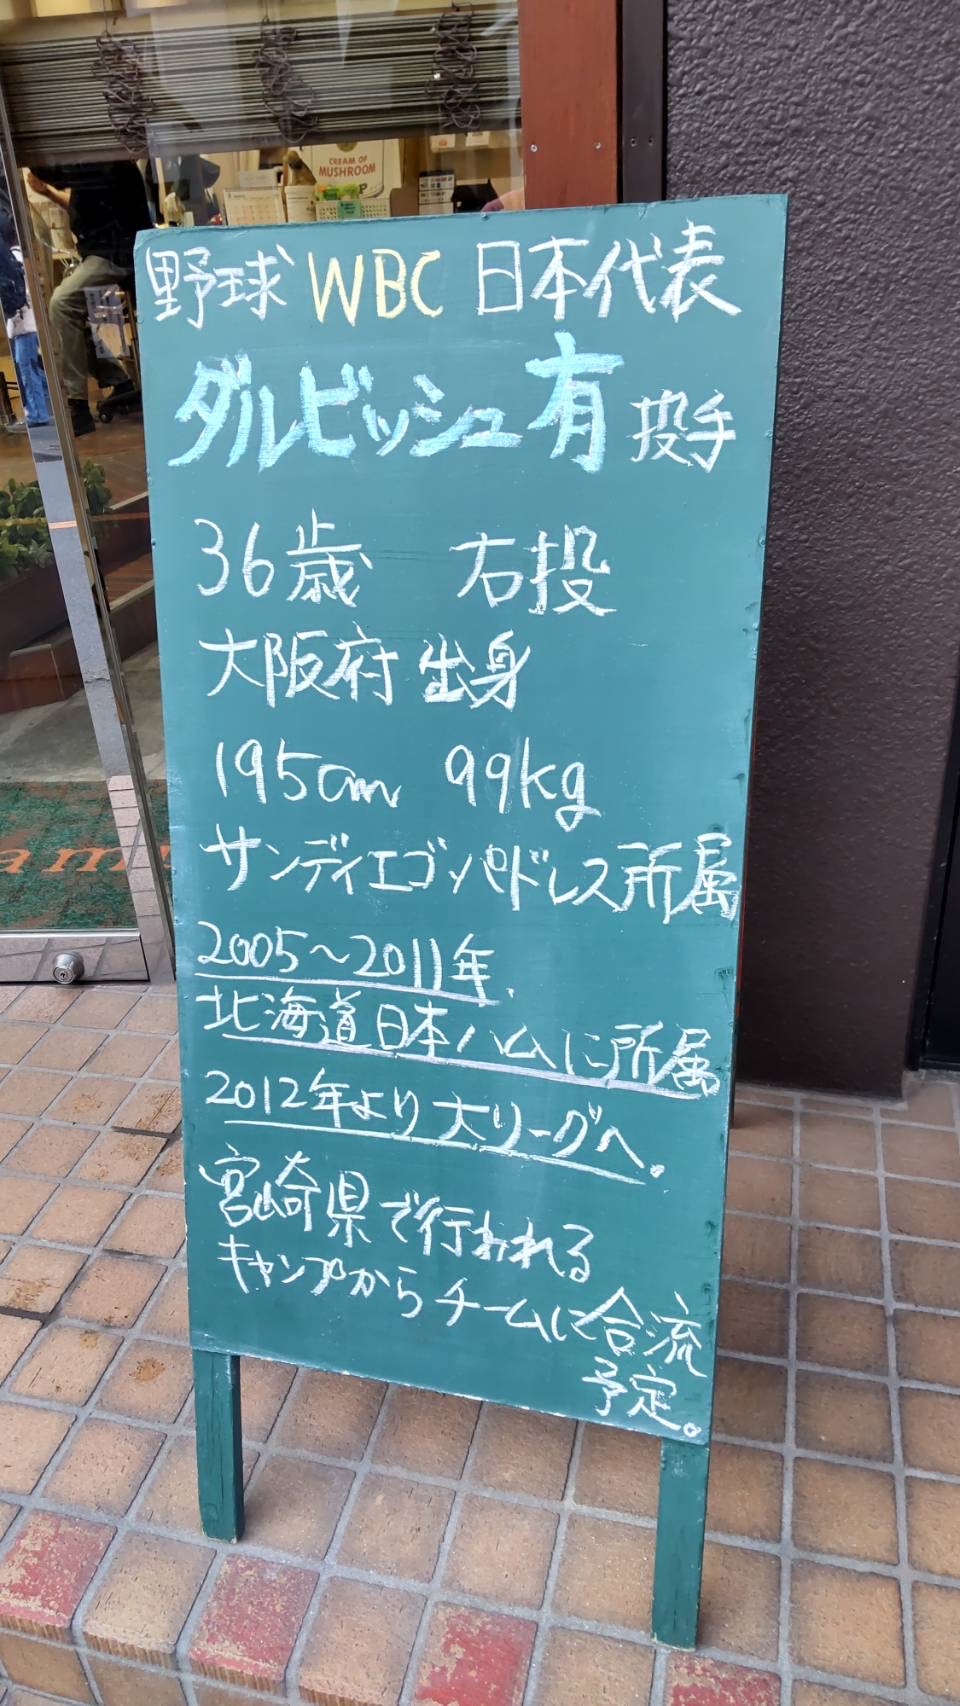 CREAM OF
MUSHROOM
野球 WBC 日本代表
ダルビッシュ有 投手
36歳 右投
大阪府 出身
195cm 99kg
サンディエゴパドレス所属
2005〜2011年、
北海道日本ハムに所属
2012年より大リーグへ。
宮崎県で行われる
キャンプからチームに合流
予定。
am